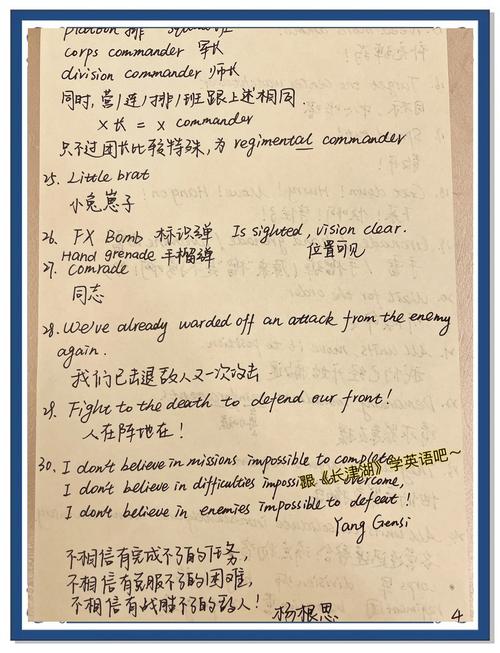 platoon 排
corps commander 军长
division commander 师长
同时,营/连/排/班跟上述相同.
X长 = X commander
只不过团长比较特殊,为 regimental commander
25. Little brat
小兔崽子
26. FX Bomb 标识弹 Is sighted, vision clear.
Hand grenade 手榴弹 位置可见
27. Comrade
同志
28. We've already warded off an attack from the enemy
again.
我们已击退敌人又一次攻击
29. Fight to the death to defend our front!
人在阵地在!
30. I don't believe in missions impossible to complete
跟《长津湖》学英语吧~
I don't believe in difficulties impossi overcome,
I don't believe in enemies impossible to defeat!
Yang Gensi
不相信有完成不了的任务,
不相信有克服不了的困难,
不相信有战胜不了的敌人!
杨根思
4